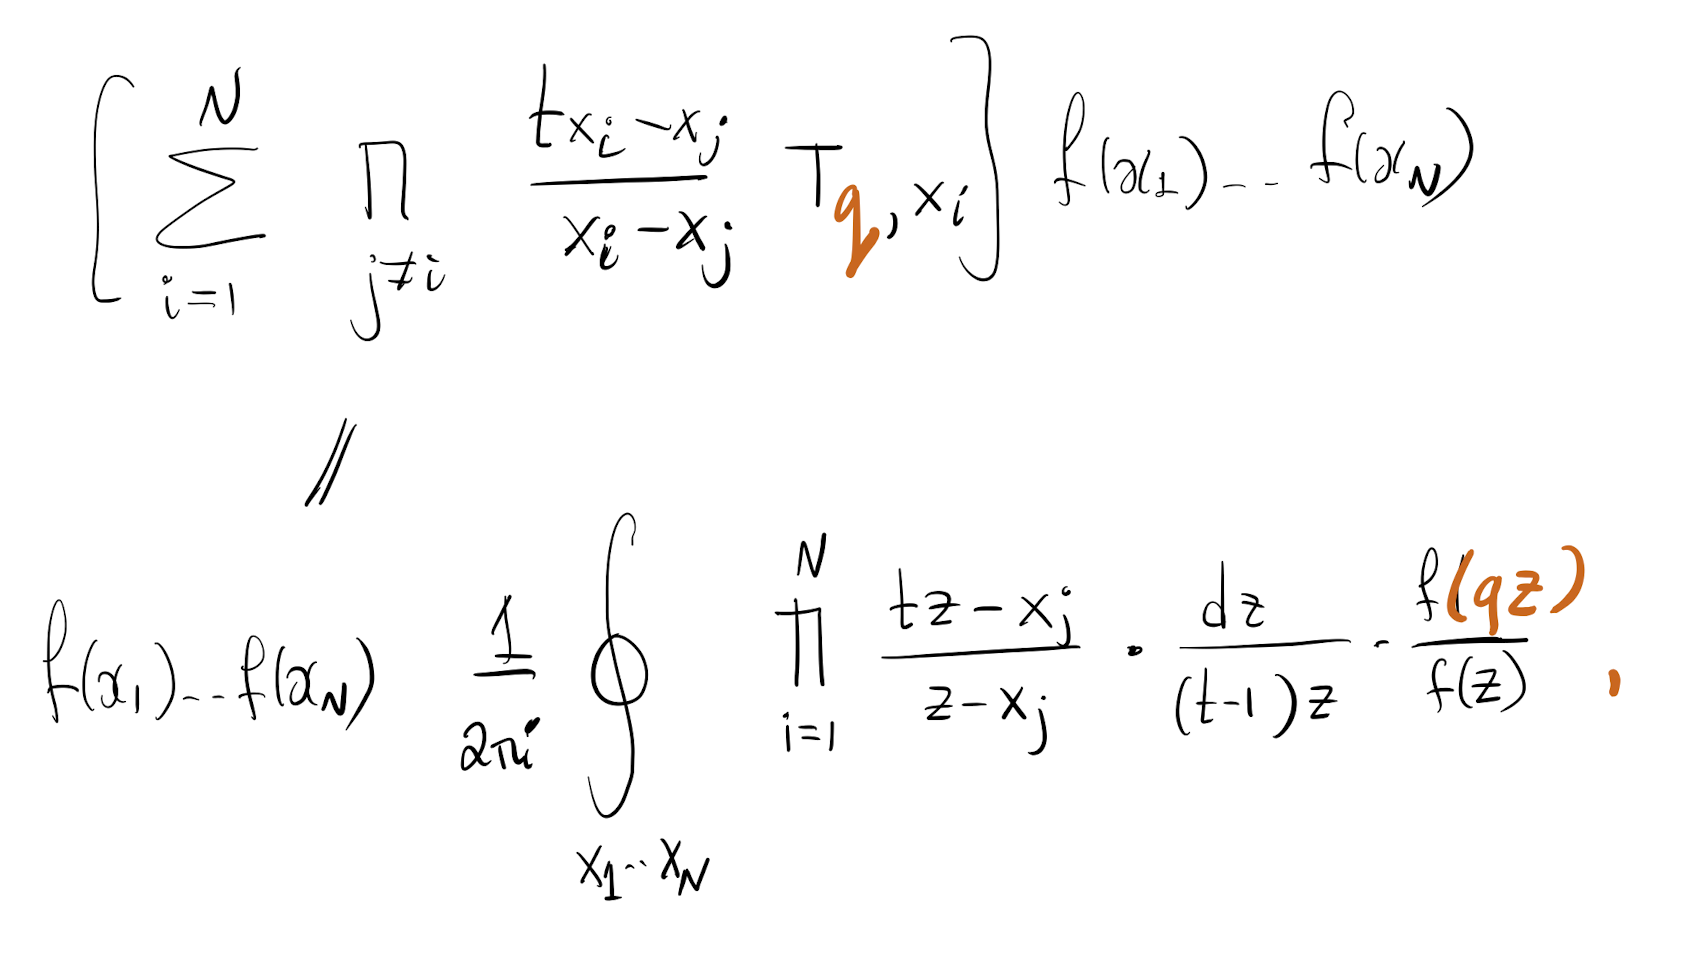 [ \sum_{i=1}^{N} \prod_{j≠i} \frac{tx_i - x_j}{x_i - x_j} T_{q, x_i} ] f(x_1) -- f(x_N)
//
f(x_1) -- f(x_N) \frac{1}{2πi} \oint_{x_1 ·· x_N} \prod_{i=1}^{N} \frac{tz - x_j}{z - x_j} · \frac{dz}{(t-1)z} · \frac{f(qz)}{f(z)} ,